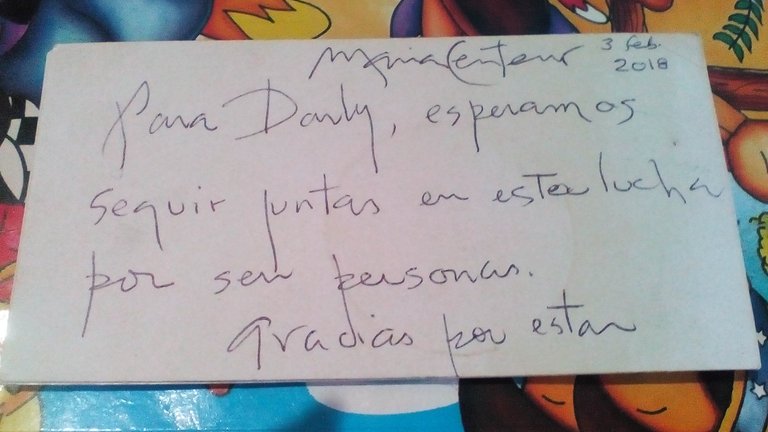 Maria Centeno 3 feb.
2018
Para Darly, esperamos
seguir juntas en esta lucha
por ser personas.
Gracias por estar